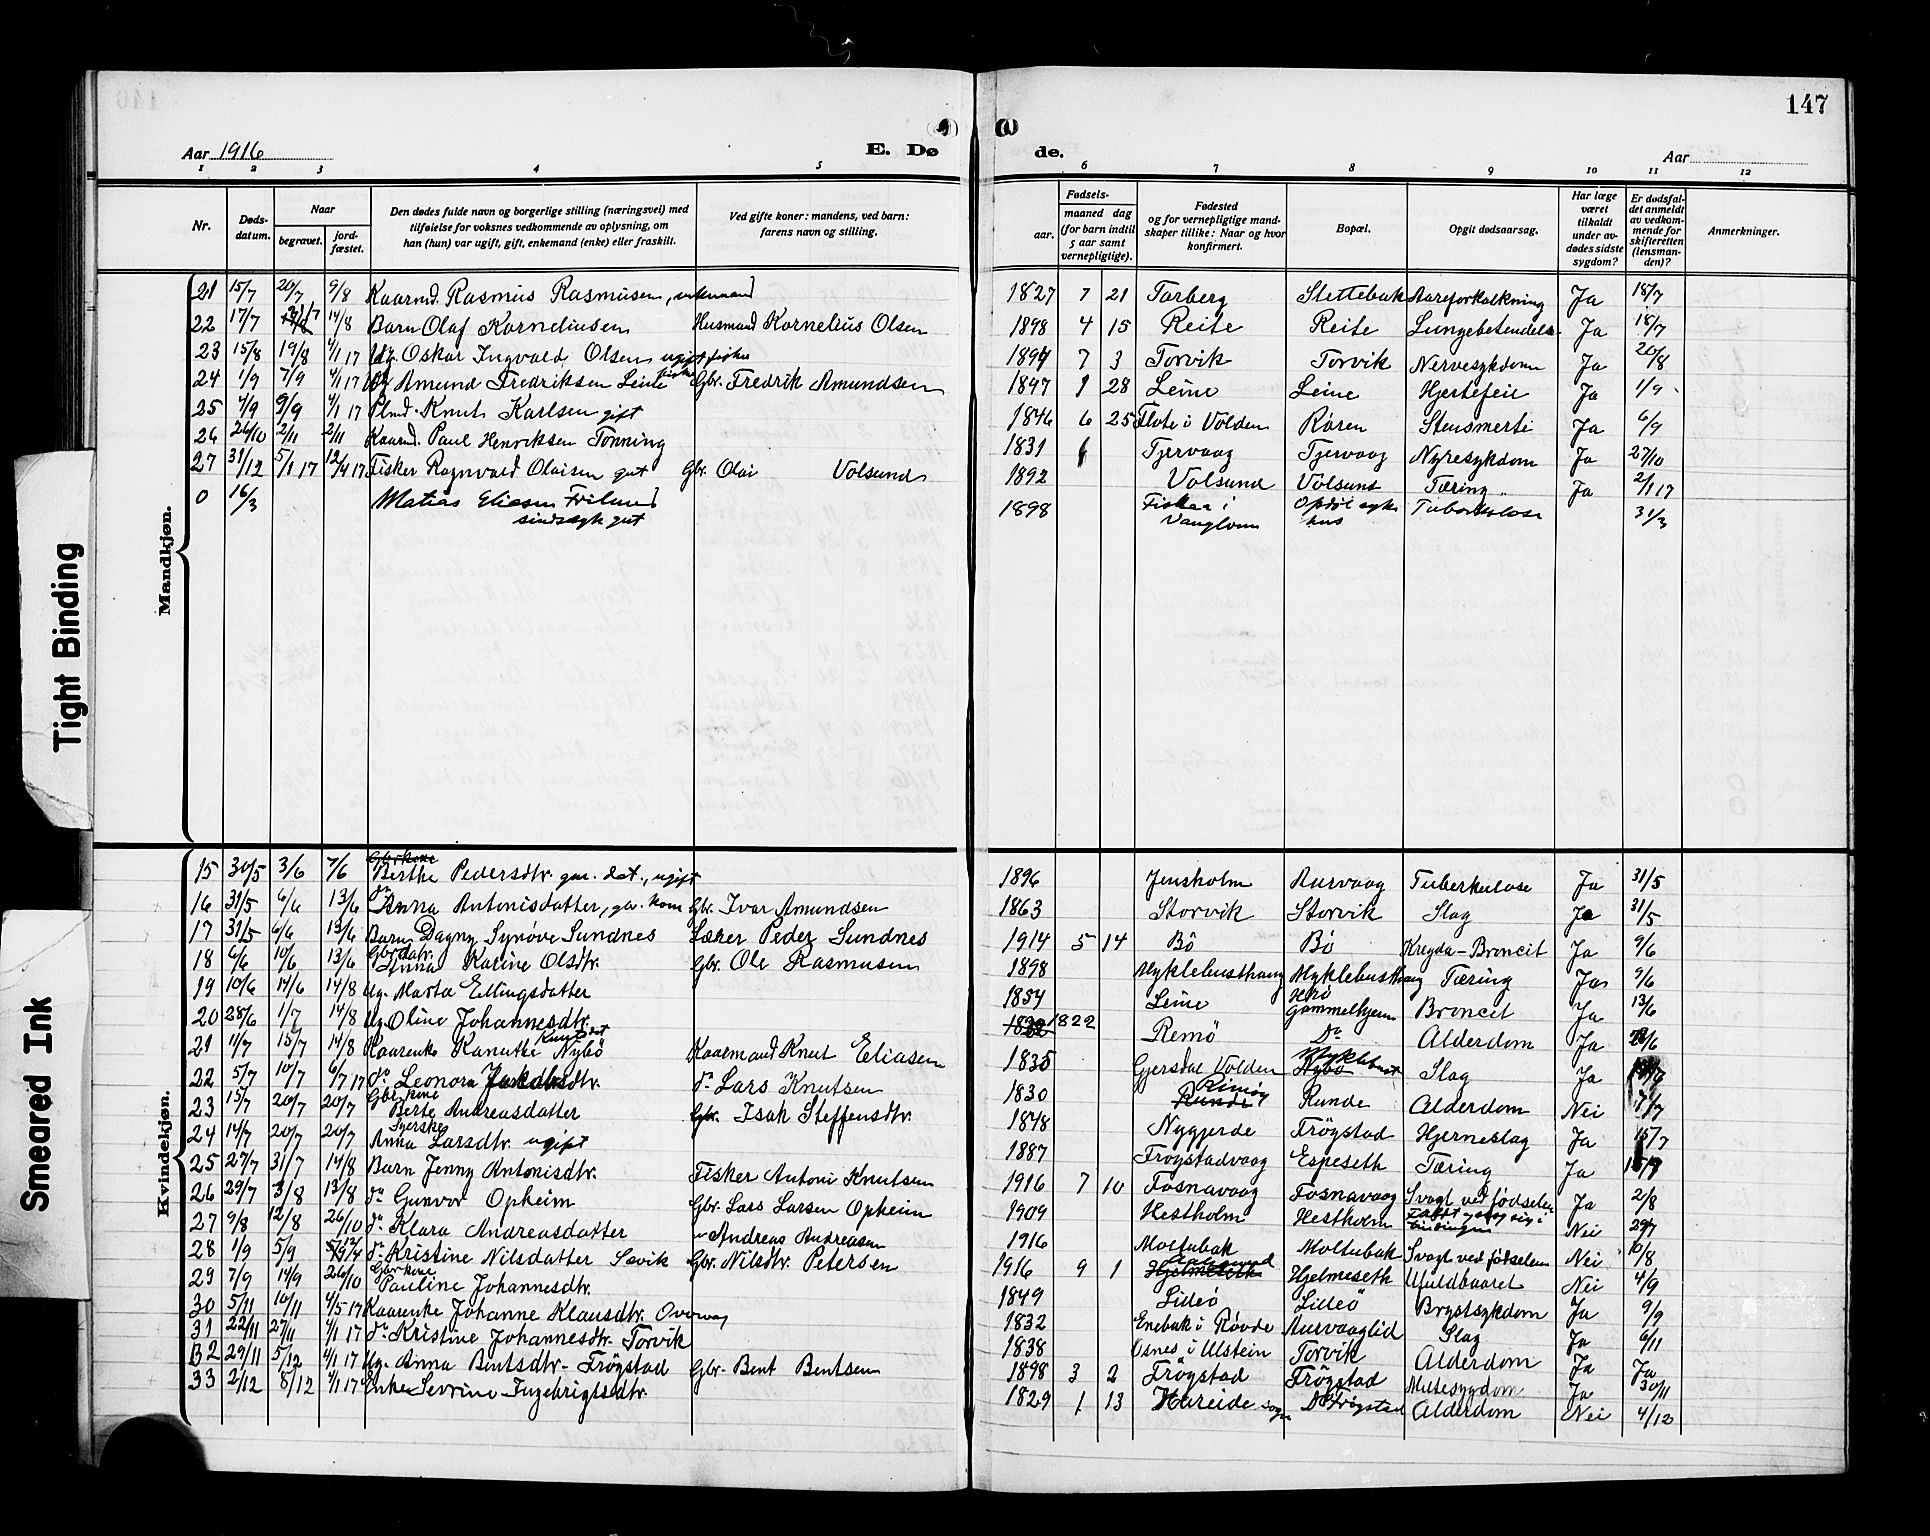 147
Aar 1916
E. Dø
de.
Aar
1 2 3 4 5 6 7 8 9 10 11 12
Nr.
Døds-
datum.
Naar
begravet.
jord-
fæstet.
Den dødes fulde navn og borgerlige stilling (næringsvei) med
tilføielse for voksnes vedkommende av oplysning, om
han (hun) var ugift, gift, enkemand (enke) eller fraskilt.
Ved gifte koner: mandens, ved barn:
farens navn og stilling.
Fødsels-
aar.
maaned dag
(for barn indtil
5 aar samt
vernepligtige).
Fødested
og for vernepligtige mand-
skaper tillike: Naar og hvor
konfirmert.
Bopæl.
Opgit dødsaarsag.
Har læge
været
tilkaldt
under av-
dødes sidste
sygdom?
Er dødsfal-
det anmeldt
av vedkom-
mende for
skifteretten
(lensman-
den)?
Anmerkninger.
Mandkjøn.
21 15/7 20/7 9/8 Kaarmd. Rasmus Rasmusen, enkemand 1827 7 21 Tarberg Slettebak Aareforkalkning Ja 18/7
22 17/7 14/8 Barn Olaf Korneliusen Husmand Kornelius Olsen 1898 4 15 Reite Reite Lungebetendelse Ja 18/7
23 15/8 19/8 4/1 17 Ug. Oskar Ingvald Olsen ugift fisker 1894 7 3 Torvik Torvik Nervesykdom Ja 20/8
24 1/9 7/9 4/1 17 Ug Amund Fredriksen Leine fisker Gbr. Fredrik Amundsen 1897 1 28 Leine Leine Hjertefeil Ja 1/9
25 4/9 9/9 4/1 17 Plmd. Knut Karlsen gift 1846 6 25 Flote i Volden Røren Stensmerte Ja 6/9
26 26/10 2/11 2/11 Kaarmd. Paul Henriksen Tonning 1831 Tjervaag Tjervaag Nyresykdom Ja 27/10
27 31/12 5/1 17 12/4 17 Fisker Ragnvald Olaisen gut Gbr. Olai Volsund 1892 Volsund Volsund Tæring Ja 2/1 17
0 16/3 Matias Eliasen Friland
sindssyk gut 1898 Fiskaa i
Vanylven Opdøl syke
hus Tuberkulose 31/3
Kvindekjøn.
15 30/5 3/6 7/6 Gbrkone
Berthe Pedersdtr. gur. dat., ugift 1896 Jensholm Aurvaag Tuberkulose Ja 31/5
16 31/5 6/6 13/6 Anna Antonisdatter, ga. kone Gbr. Ivar Amundsen 1863 Storvik Storvik Slag Ja 31/5
17 31/5 6/6 13/6 Barn Dagny Synøve Sundnes Lærer Peder Sundnes 1914 5 14 Bö Bö Kregda-Broncit Ja 9/6
18 6/6 10/6 13/6 Gbrdatr.
Anna Karine Olsdtr. Gbr. Ole Rasmusen 1898 Myklebusthaug Myklebusthaug Tæring Ja 9/6
19 10/6 14/6 14/8 Ug. Marta Ellingsdatter 1854 Leine Gammelhjem Broncit Ja 13/6
20 28/6 1/7 14/8 Ug. Oline Johannesdtr. 1822 Remö Do Alderdom Ja
21 11/7 15/7 14/8 Kaarenke Kanutte Nybö Kaarmand Knut Eliasen 1835 Gjersdal Volden Myklebust Slag Ja
22 5/7 10/7 6/7 17 do Leonora Jakobsdtr. do Lars Knutsen 1830 Rimöy Runde Alderdom Nei 7/7
23 15/7 20/7 20/7 Gbrkone
Berte Andreasdatter Gbr. Isak Steffensdtr. 1848 Nygjerde Frögstad Hjerneslag Ja 15/7
24 14/7 20/7 20/7 Syerske
Anna Larsdtr. ugift 1887 Frögstadvaag Espeseth Tæring Ja
25 27/7 31/7 14/8 Barn Jenny Antonisdtr. Fisker Antoni Knutsen 1916 7 10 Fosnavaag Fosnavaag Svagt ved födselen Ja 2/8
26 29/7 3/8 13/8 do Gunvor Opheim Gbr. Lars Larsen Opheim 1909 Hestholm Hestholm Nei 29/7
27 9/8 12/8 26/10 do Klara Andreasdatter " Andreas Andreasen 1916 Moltubak Moltubak Svagt ved fötselen Nei 10/8
28 1/9 5/9 do Kristine Nilsdatter Sævik Gbr. Nilsdtr. Petersen 1916 9 1 Hjelmeseth Hjelmeseth Ufuldbaaret Nei 4/9
29 7/9 14/9 26/10 Gbrkone
Pauline Johannesdtr. 1849 Lideö Lideö Brystsykdom Ja 9/9
30 5/11 10/11 4/5 17 Kaarenke Johanne Klausdtr. Overvaag 1832 Enebak i Røvde Aurvaaglid Slag Ja 6/11
31 22/11 27/11 4/1 17 do Kristine Johannesdtr. Torvik 1838 Osnes i Ulstein Torvik Alderdom Ja Ja
32 29/11 5/12 4/1 17 Ug. Anna Bentsdtr. Frögstad Gbr. Bent Bentsen 1898 3 2 Frögstad Frögstad Miltesygdom Ja 30/11
33 2/12 8/12 4/1 17 Enke Sevrine Ingebrigtsdtr. 1829 1 13 Hareide sogn Do Frögstad Alderdom Nei 4/12
Tight Binding
Smeared Ink